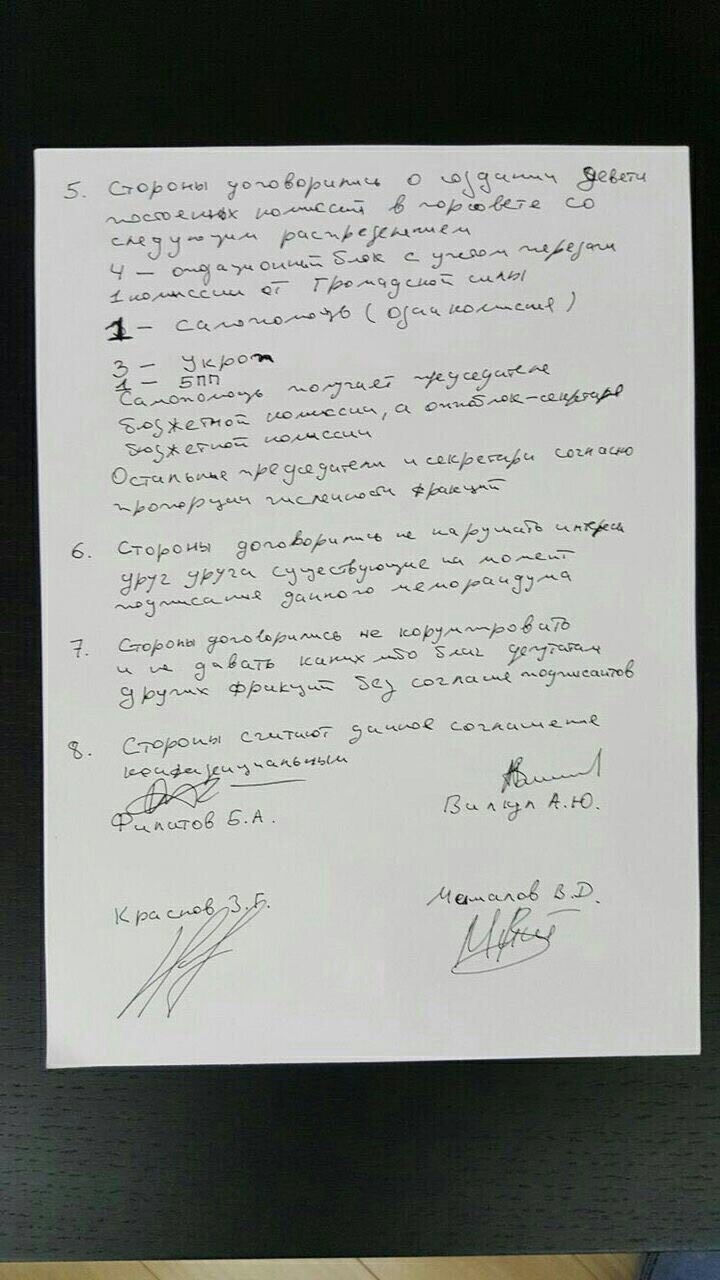 5. Стороны договорились о создании девети
постоенных комиссий в горсовете со
следующим распределением
4 – оппозиционный блок с учетом передачи
1 комиссии от Громадской силы
1 – Самопомощь (одна комиссия)
3 – Укроп
1 – БПП
Самопомощь получает председателя
бюджетной комиссии, а оппоблок – секретаря
бюджетной комиссии
Остальные председатели и секретари согласно
пропорции численности фракций
6. Стороны договорились не нарушать интересы
друг друга существующие на момент
подписание данного меморандума
7. Стороны договорились не корумпировать
и не давать каких либо благ депутатам
других фракций без согласие подписантов
8. Стороны считают данное соглашение
конфиденциальным
Филатов Б.А.
Вилкул А.Ю.
Краснов З.Г.
Мамалов В.D.